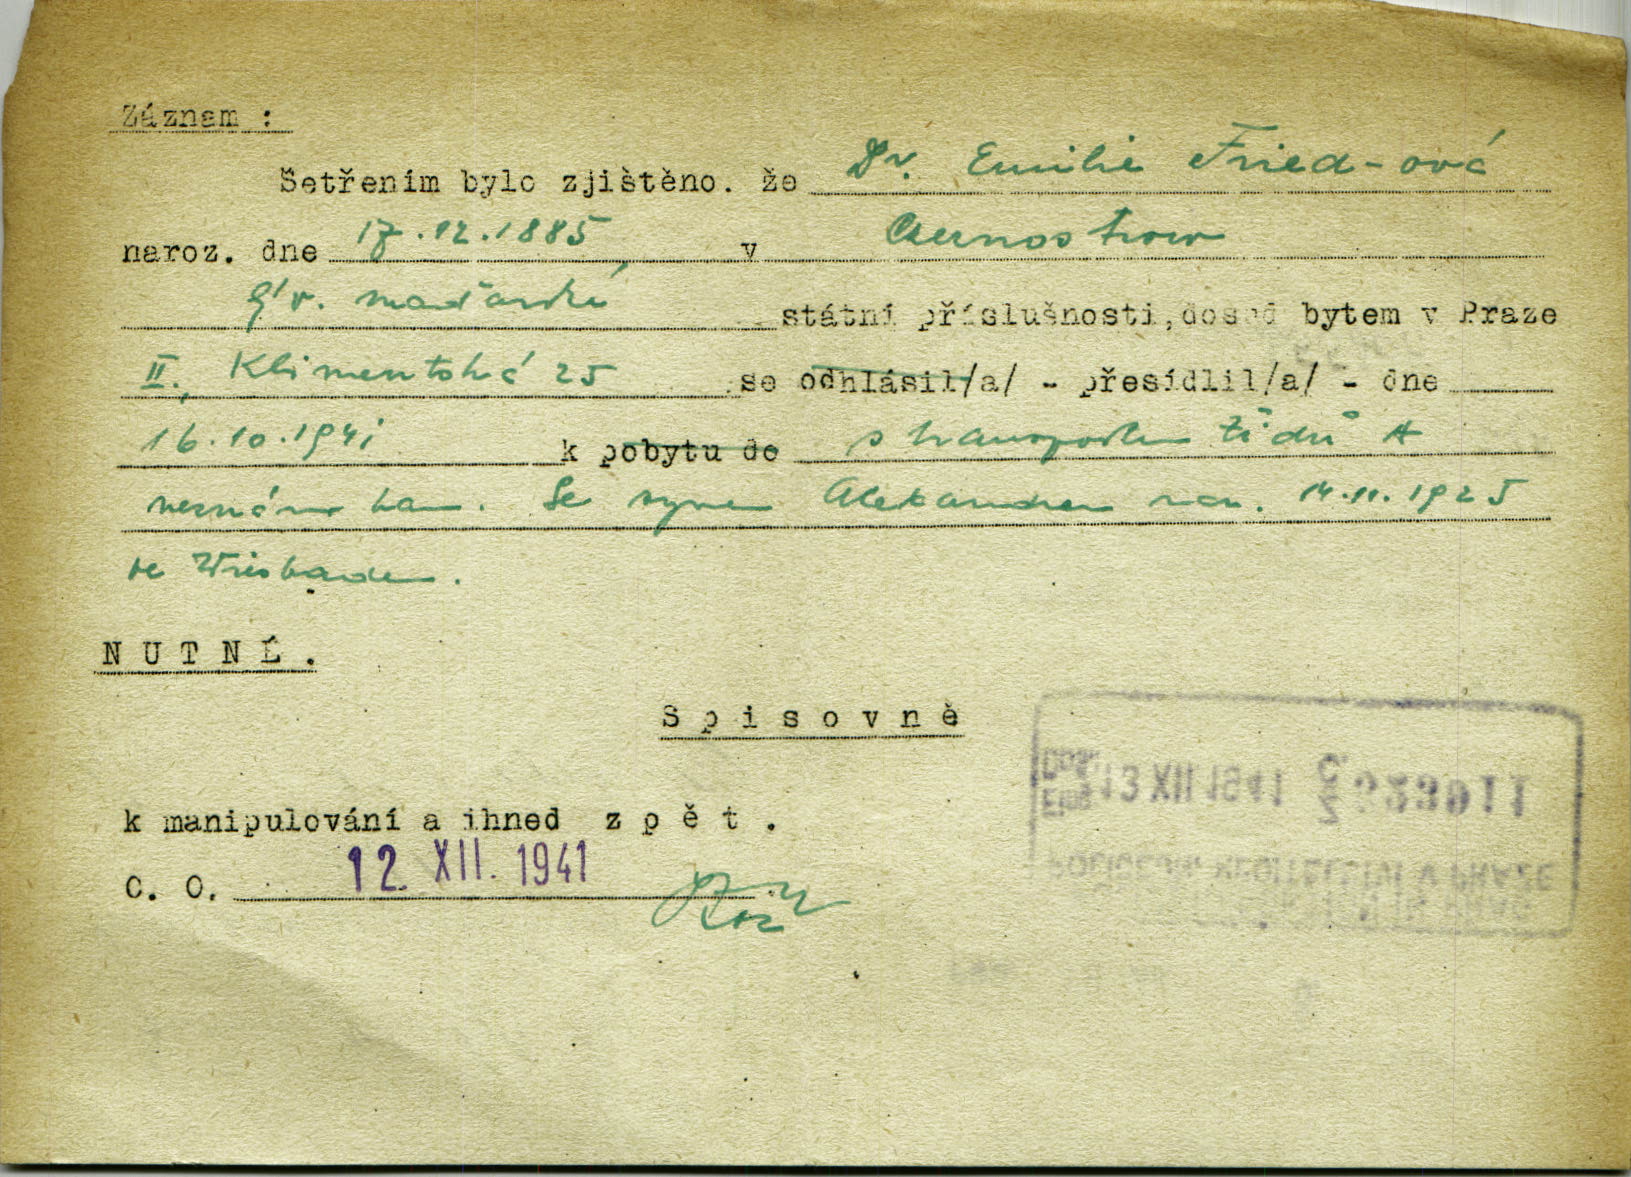 Záznam :
Šetřením bylo zjištěno. že Dr. Emilie Fried-ová
naroz. dne 17.12.1885 v
maďarské státní příslušnosti, dosud bytem v Praze
II., Klimentská 25 se odhlásil/a/ - přesídlil/a/ - dne
16.10.1941 k pobytu do s transportem židů A
neznámo kam. Se synem Alexandrem nar. 14.11.1925
ve Wiesbaden.
NUTNÉ.
Spisovně
k manipulování a ihned zpět.
C. O. 12. XII. 1941
13 XII 1941
POLICEJNÍ ŘEDITELSTVÍ V PRAZE